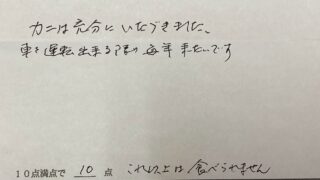 カニは充分にいただきました。
車を運転出来る限り毎年来たいです
10点満点で 10 点 これ以上は食べられません